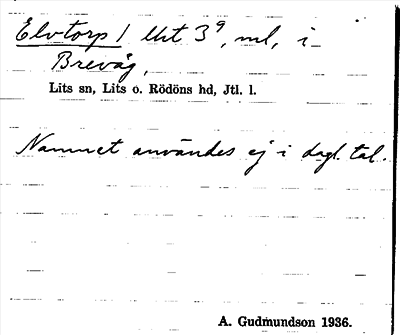 Elvtorp 1 lht 3⁹, ml, i
Brevåg,
Lits sn, Lits o. Rödöns hd, Jtl. l.
Namnet användes ej i dagl. tal.
A. Gudmundson 1936.